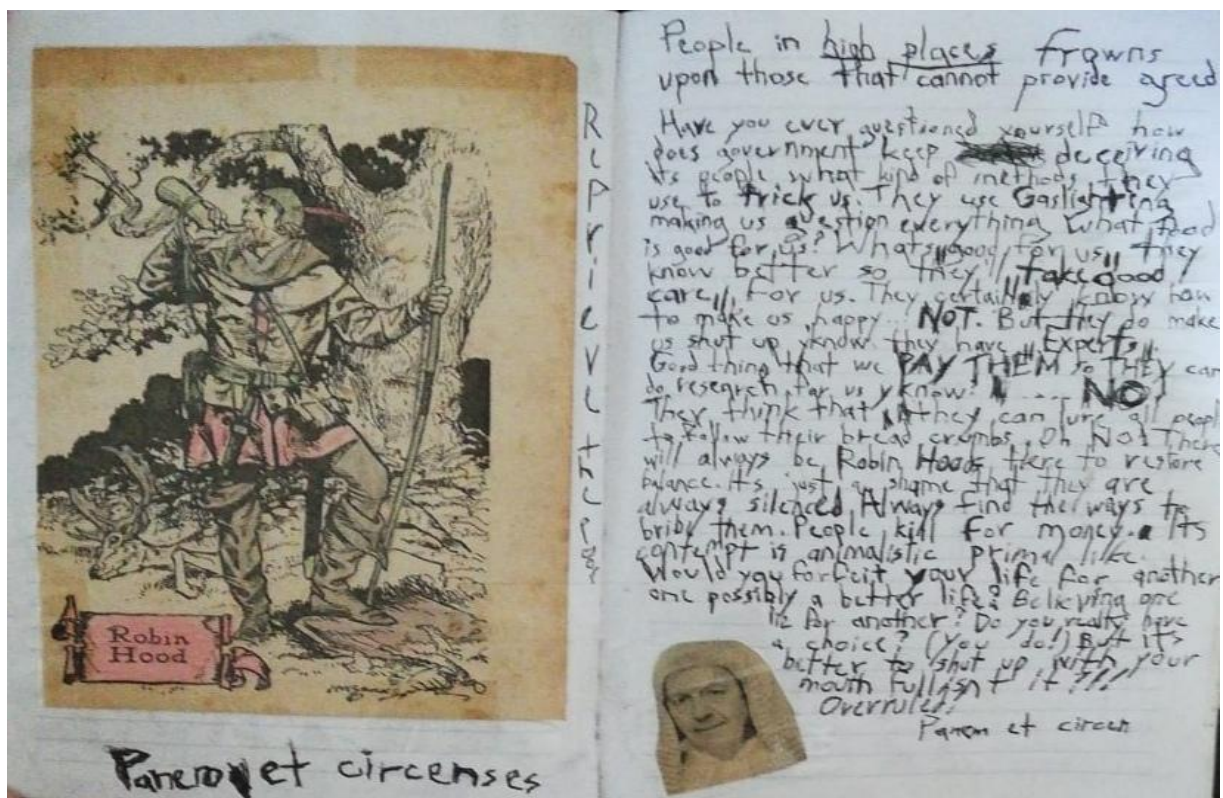 Robin
Hood
Panem et circenses
Reprieve the poor
People in high places frowns
upon those that cannot provide agreed
Have you ever questioned yourself how
does government keep deceiving
its people what kind of methods they
use to trick us. They use Gaslighting
making us question everything. What food
is good for us? Whats good for us, they
know better so they "take good
care" for us. They certainly know how
to make us happy... NOT. But they do make
us shut up yknow they have "Experts"
Good thing that we PAY THEM so THEY can
do research for us yknow! .... NO!
They think that they can lure all people
to follow their bread crumbs. Oh No! There
will always be Robin Hoods there to restore
balance. It's just a shame that they are
always silenced. Always find the ways to
briby them. People kill for money. Its
contempt is animalistic primal like.
Would you forfeit your life for another
one possibly a better life? Believing one
for another? Do you really have
a choice? (You do!) But it's
better to shut up with your
mouth full isnt it?!!
Overruled!
Panem et circen